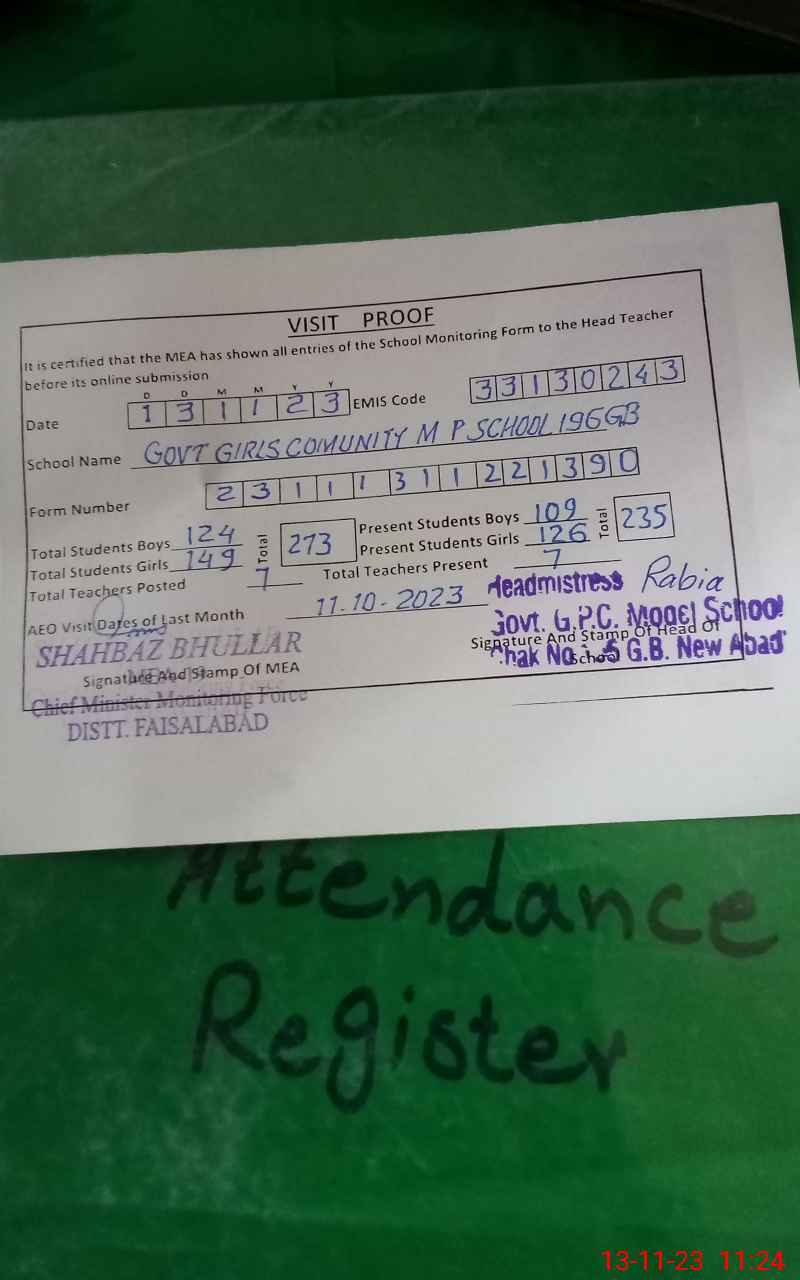 VISIT PROOF
It is certified that the MEA has shown all entries of the School Monitoring Form to the Head Teacher
before its online submission
D D M M Y Y
Date 1 3 1 1 2 3 EMIS Code 3 3 1 3 0 2 4 3
School Name GOVT GIRLS COMUNITY M P SCHOOL 196GB
Form Number 2 3 1 1 1 3 1 1 2 2 1 3 9 0
Total Students Boys 124 Total 273 Present Students Boys 109 Total 235
Total Students Girls 149 Present Students Girls 126
Total Teachers Posted 7 Total Teachers Present 7
AEO Visit Dates of Last Month 11-10-2023
Headmistress Rabia
Govt. G.P.C. Model School
Signature And Stamp Of Head Of
School
Chak No. G.B. New Abad
SHAHBAZ BHULLAR
Signature And Stamp Of MEA
Chief Minister Monitoring Force
DISTT. FAISALABAD
Attendance
Register
13-11-23 11:24